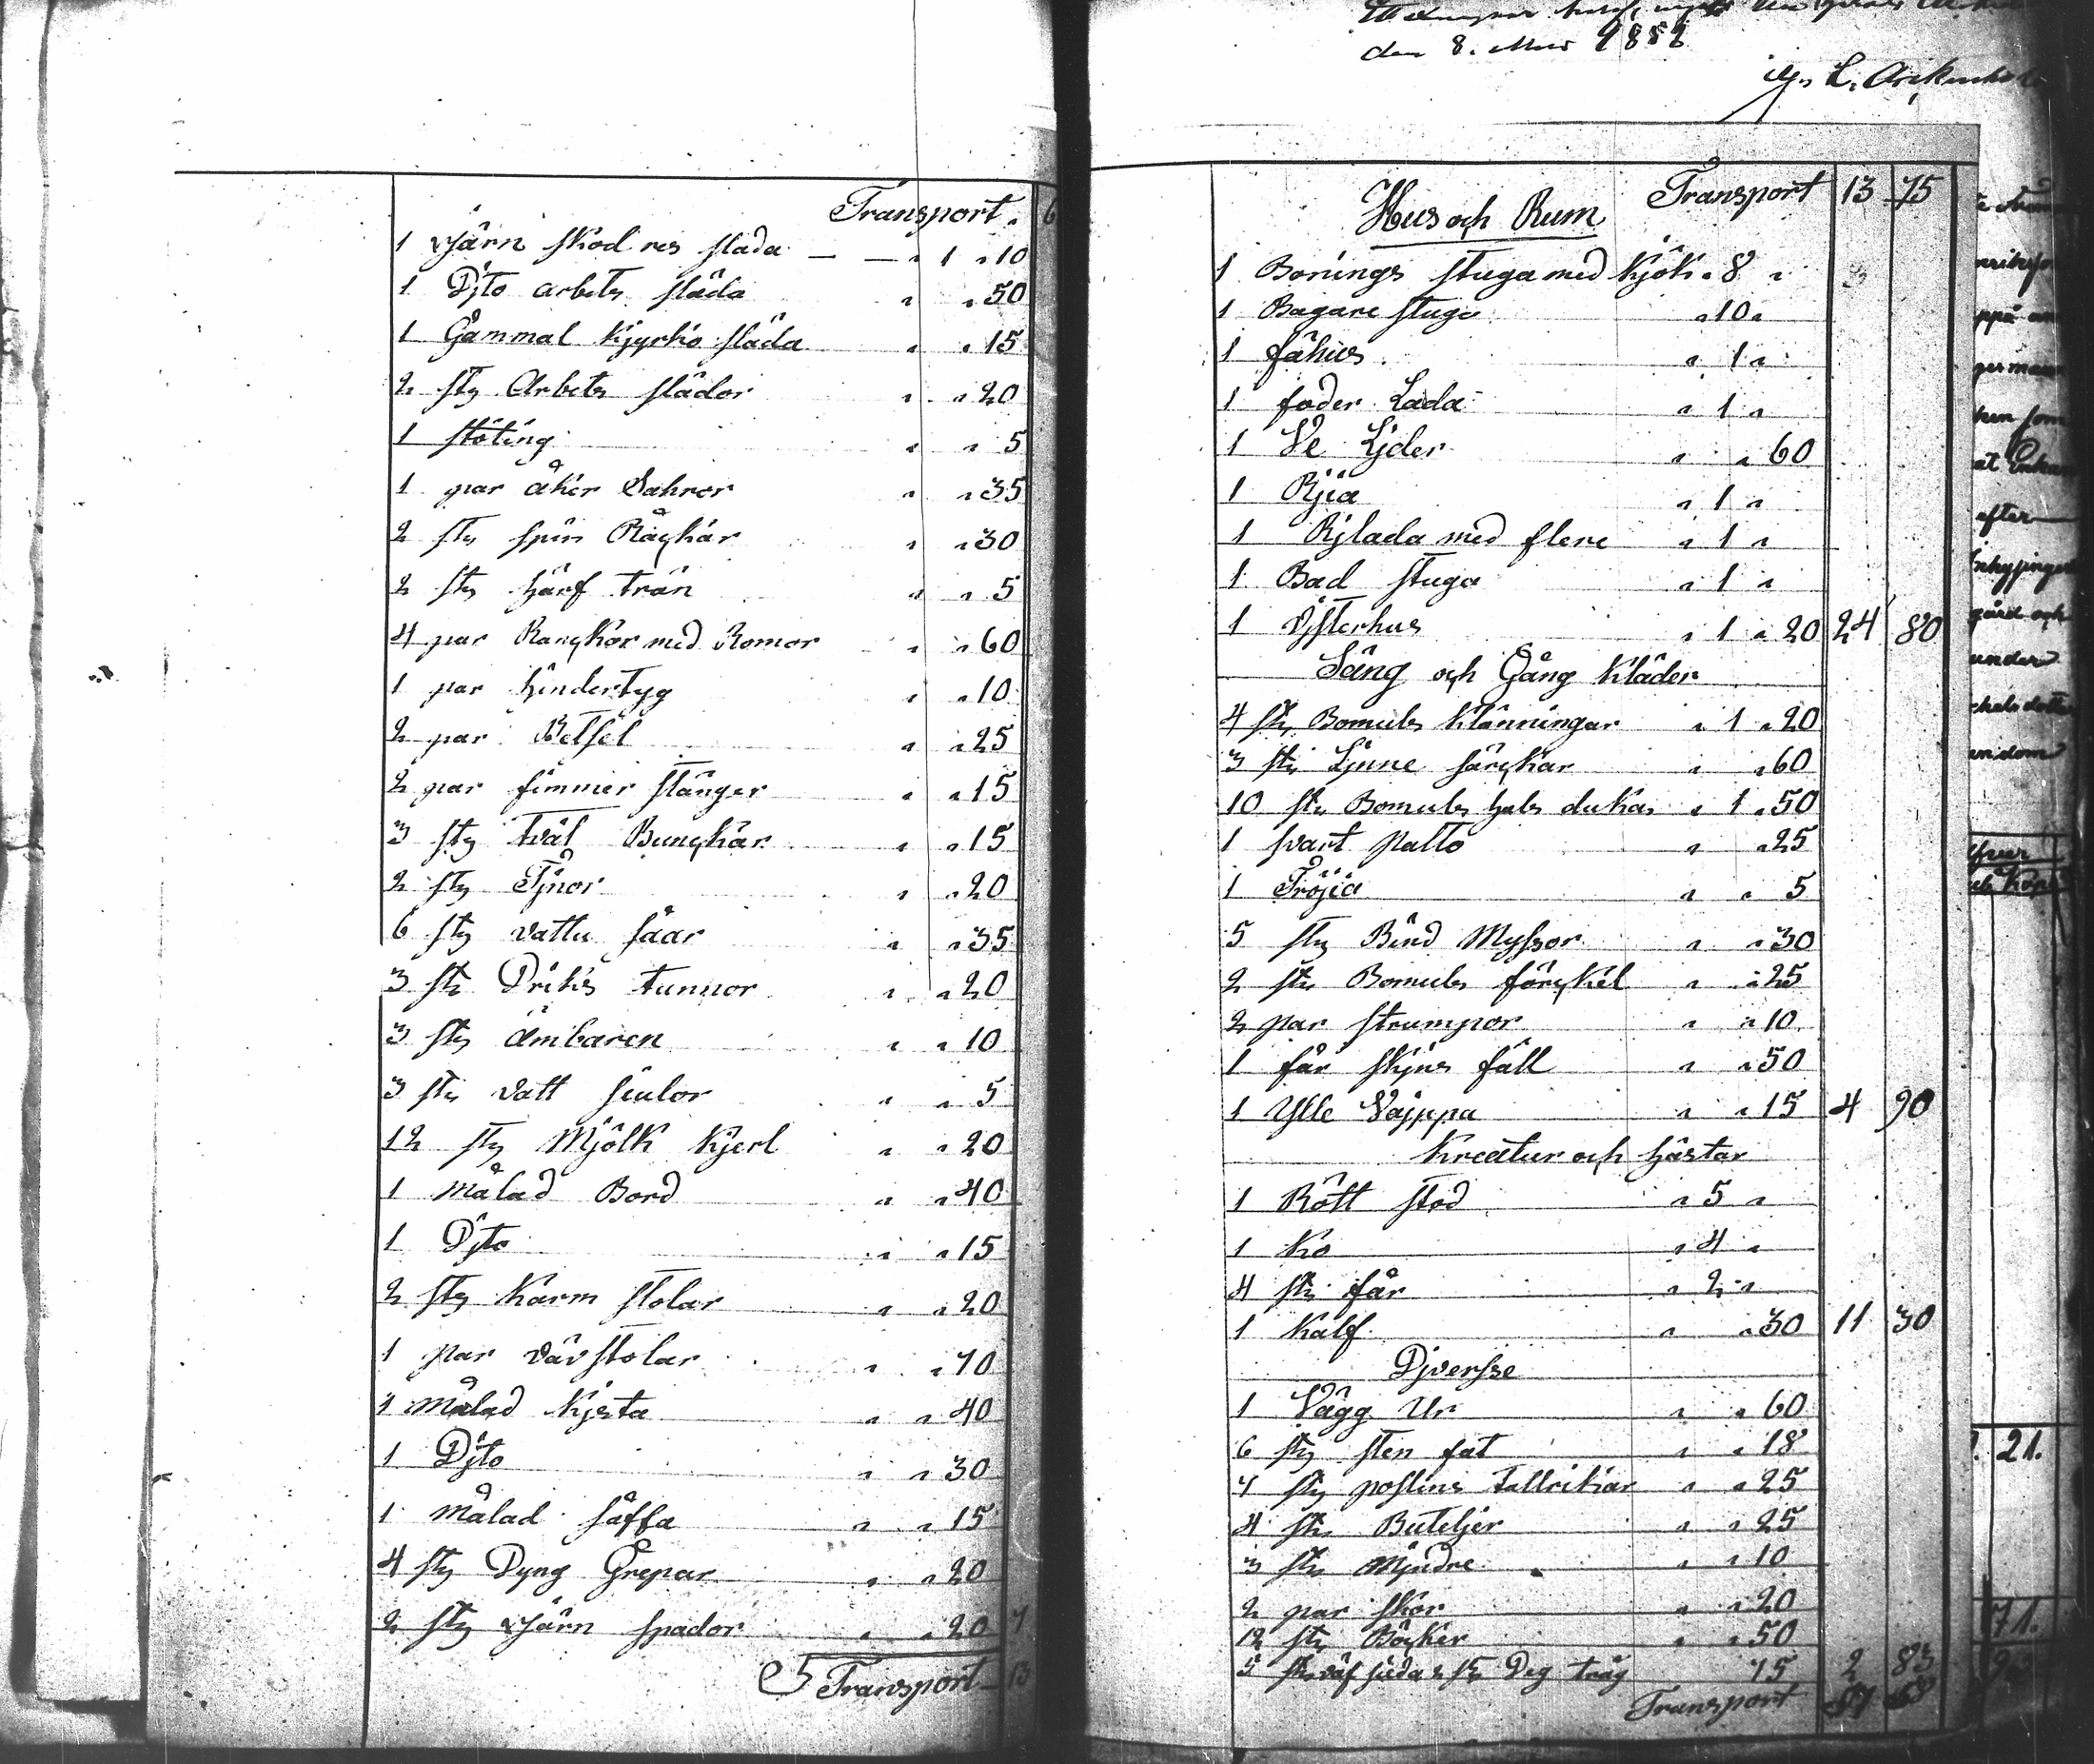 Transport. 6
1 Järn skod res släda — — „ 1 „ 10
1 Dito arbets släda „ „ 50
1 Gammal Kjyrko släda „ „ 15
2 sty Arbets slädor „ „ 20
1 stöting „ „ 5
1 par åker Sahror „ „ 35
2 sty spin Råckar „ „ 30
2 sty härf trän „ „ 5
4 par Rangkor med Romor „ „ 60
1 par hindertyg „ „ 10
2 par Betsel „ „ 25
2 par fimmer stänger „ „ 15
3 sty tväl Bunckar „ „ 15
2 sty Tjnor „ „ 20
6 sty vattu såar „ „ 35
3 sty Driks tunnor „ „ 20
3 sty ämbaren „ „ 10
3 sty vatt siulor „ „ 5
12 sty Mjölk Kjerl „ „ 20
1 målad Bord „ „ 40
1 Djto „ „ 15
2 sty Karm stolar „ „ 20
1 par vävstolar „ „ 70
1 målad Kjsta „ „ 40
1 Djto „ „ 30
1 målad såffa „ „ 15
4 sty Dyng Grepar „ „ 20
2 sty Järn spador „ „ 20 7
Transport 13
den 8. 1882
L.
Hus och Rum Transport 13 75
1 Bonings stuga med Kjök „ 8 „
1 Bagare stuga „ 10 „
1 fähus „ 1 „
1 foder Lada „ 1 „
1 Ve Ljder „ „ 60
1 Rjia „ 1 „
1 Rjlada med flere „ 1 „
1 Bad stuga „ 1 „
1 Vjsterhus „ 1 „ 20 24 80
Säng och Gång Kläder
4 sty Bomuls Klänningar „ 1 „ 20
3 sty Ljnne särckar „ „ 60
10 sty Bomuls hals dukar „ 1 „ 50
1 svart palto „ „ 25
1 Tröjia „ „ 5
5 sty Bind Myssor „ „ 30
2 sty Bomuls förckel „ „ 25
2 par strumpor „ „ 10
1 får skjns fäll „ „ 50
1 Ylle Väppa „ „ 15 4 90
Kreatur och hästar
1 Rött stod „ 5 „
1 Ko „ 4 „
4 sty får „ 2 „
1 Kalf „ „ 30 11 30
Djversse
1 Vägg Ur „ „ 60
6 sty sten fat „ „ 18
7 sty poslins tallrikar „ „ 25
4 sty Buteljer „ „ 25
3 sty Mjndre „ „ 10
2 par skor „ „ 20
12 sty Böcker „ „ 50
5 sty väf skeda 2 st Deg tråg 75 2 83
Transport
efter
gård och
under
endom
21.
71.